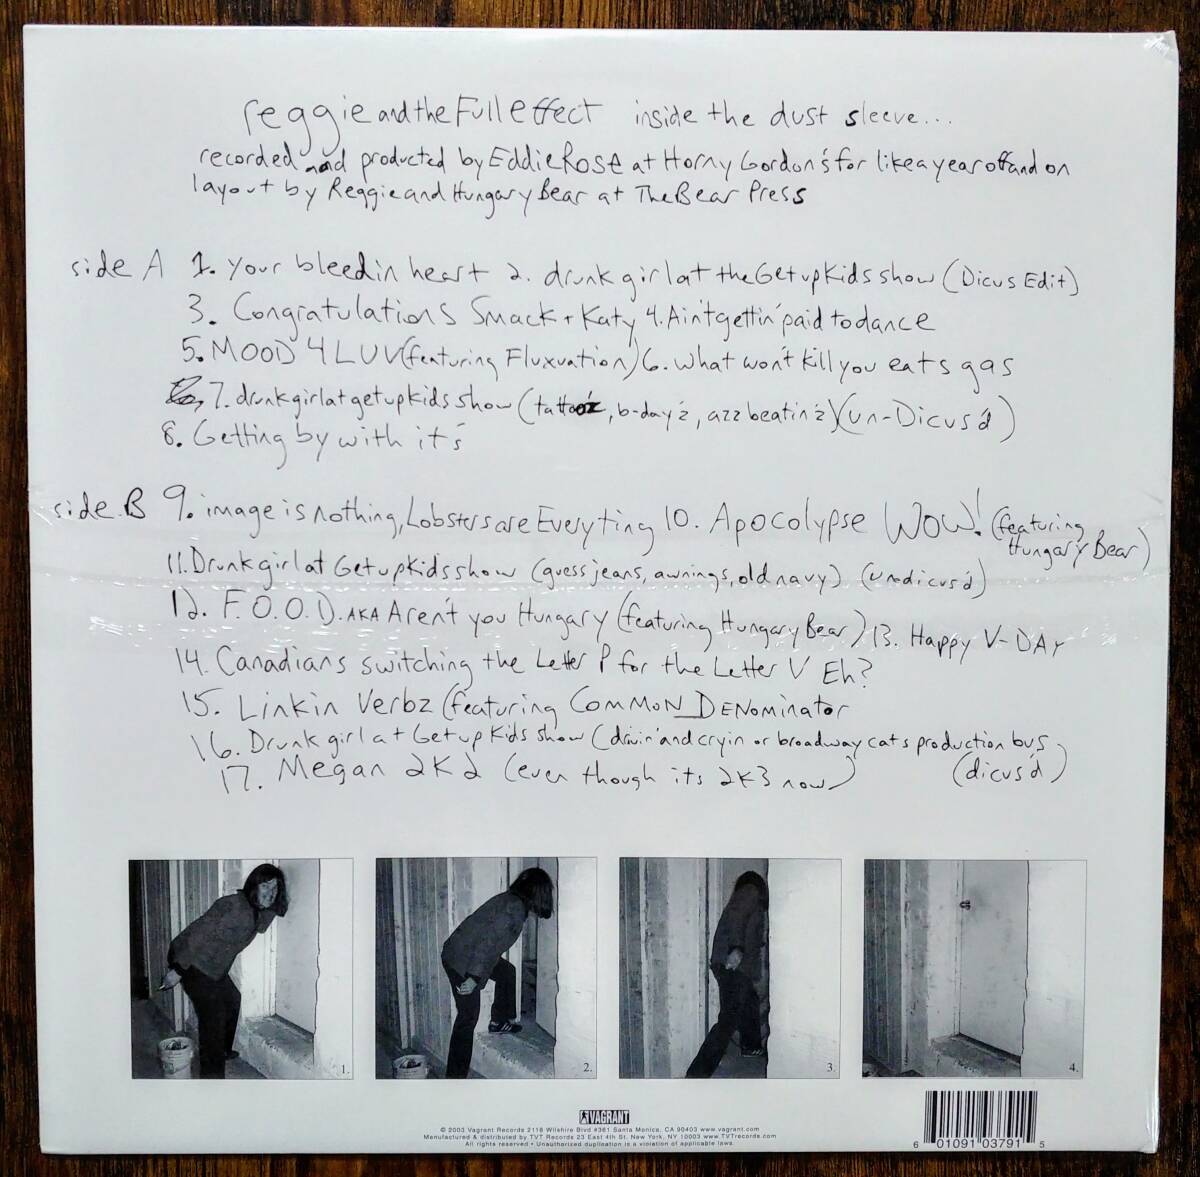 reggie and the Full Effect inside the dust sleeve...
recorded and producted by Eddie Rose at Horny Gordon's for like a year off and on
layout by Reggie and Hungary Bear at The Bear Press
side A 1. your bleedin heart 2. drunk girl at the Get up Kids show (Dicus Edit)
3. Congratulations Smack + Katy 4. Ain't gettin' paid to dance
5. MOOD 4 LUV (featuring Fluxuation) 6. what won't kill you eats gas
7. drunk girl at get up kids show (tattooz, b-day'z, azz beatin'z) (un-Dicus'd)
8. Getting by with it's
side B 9. image is nothing, Lobsters are Everyting 10. Apocolypse WOW! (featuring Hungary Bear)
11. Drunk girl at Get up Kids show (guess jeans, awnings, old navy) (undicus'd)
12. F.O.O.D. AKA Aren't you Hungary (featuring Hungary Bear) 13. Happy V-DAY
14. Canadians switching the Letter P for the Letter V Eh?
15. Linkin Verbz (featuring COMMON DENOMINATOR
16. Drunk girl at Get up Kids show (drivin' and cryin or broadway cats production bus)
17. Megan 2K2 (even though its 2K3 now) (dicus'd)
1. 2. 3. 4.
VAGRANT
© 2003 Vagrant Records 2118 Wilshire Blvd #361 Santa Monica, CA 90403 www.vagrant.com
Manufactured & distributed by TVT Records 23 East 4th St. New York, NY 10003 www.TVTrecords.com
All rights reserved • Unauthorized duplication is a violation of applicable laws.
6 01091 03791 5